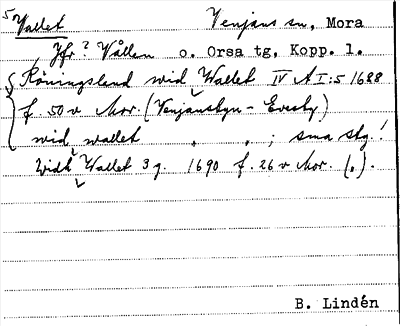 5 Wallet Venjans sn, Mora
Jfr? Vållen o. Orsa tg, Kopp. l.
Röningsland wid Wallet IV A I:5 1688
f. 50 v Mor. (Venjansbyn - Evesby)
wid wallet " " ; sma stg!
Widt Wallet 3 g. 1690 f. 26 v Mor. (").
B. Lindén